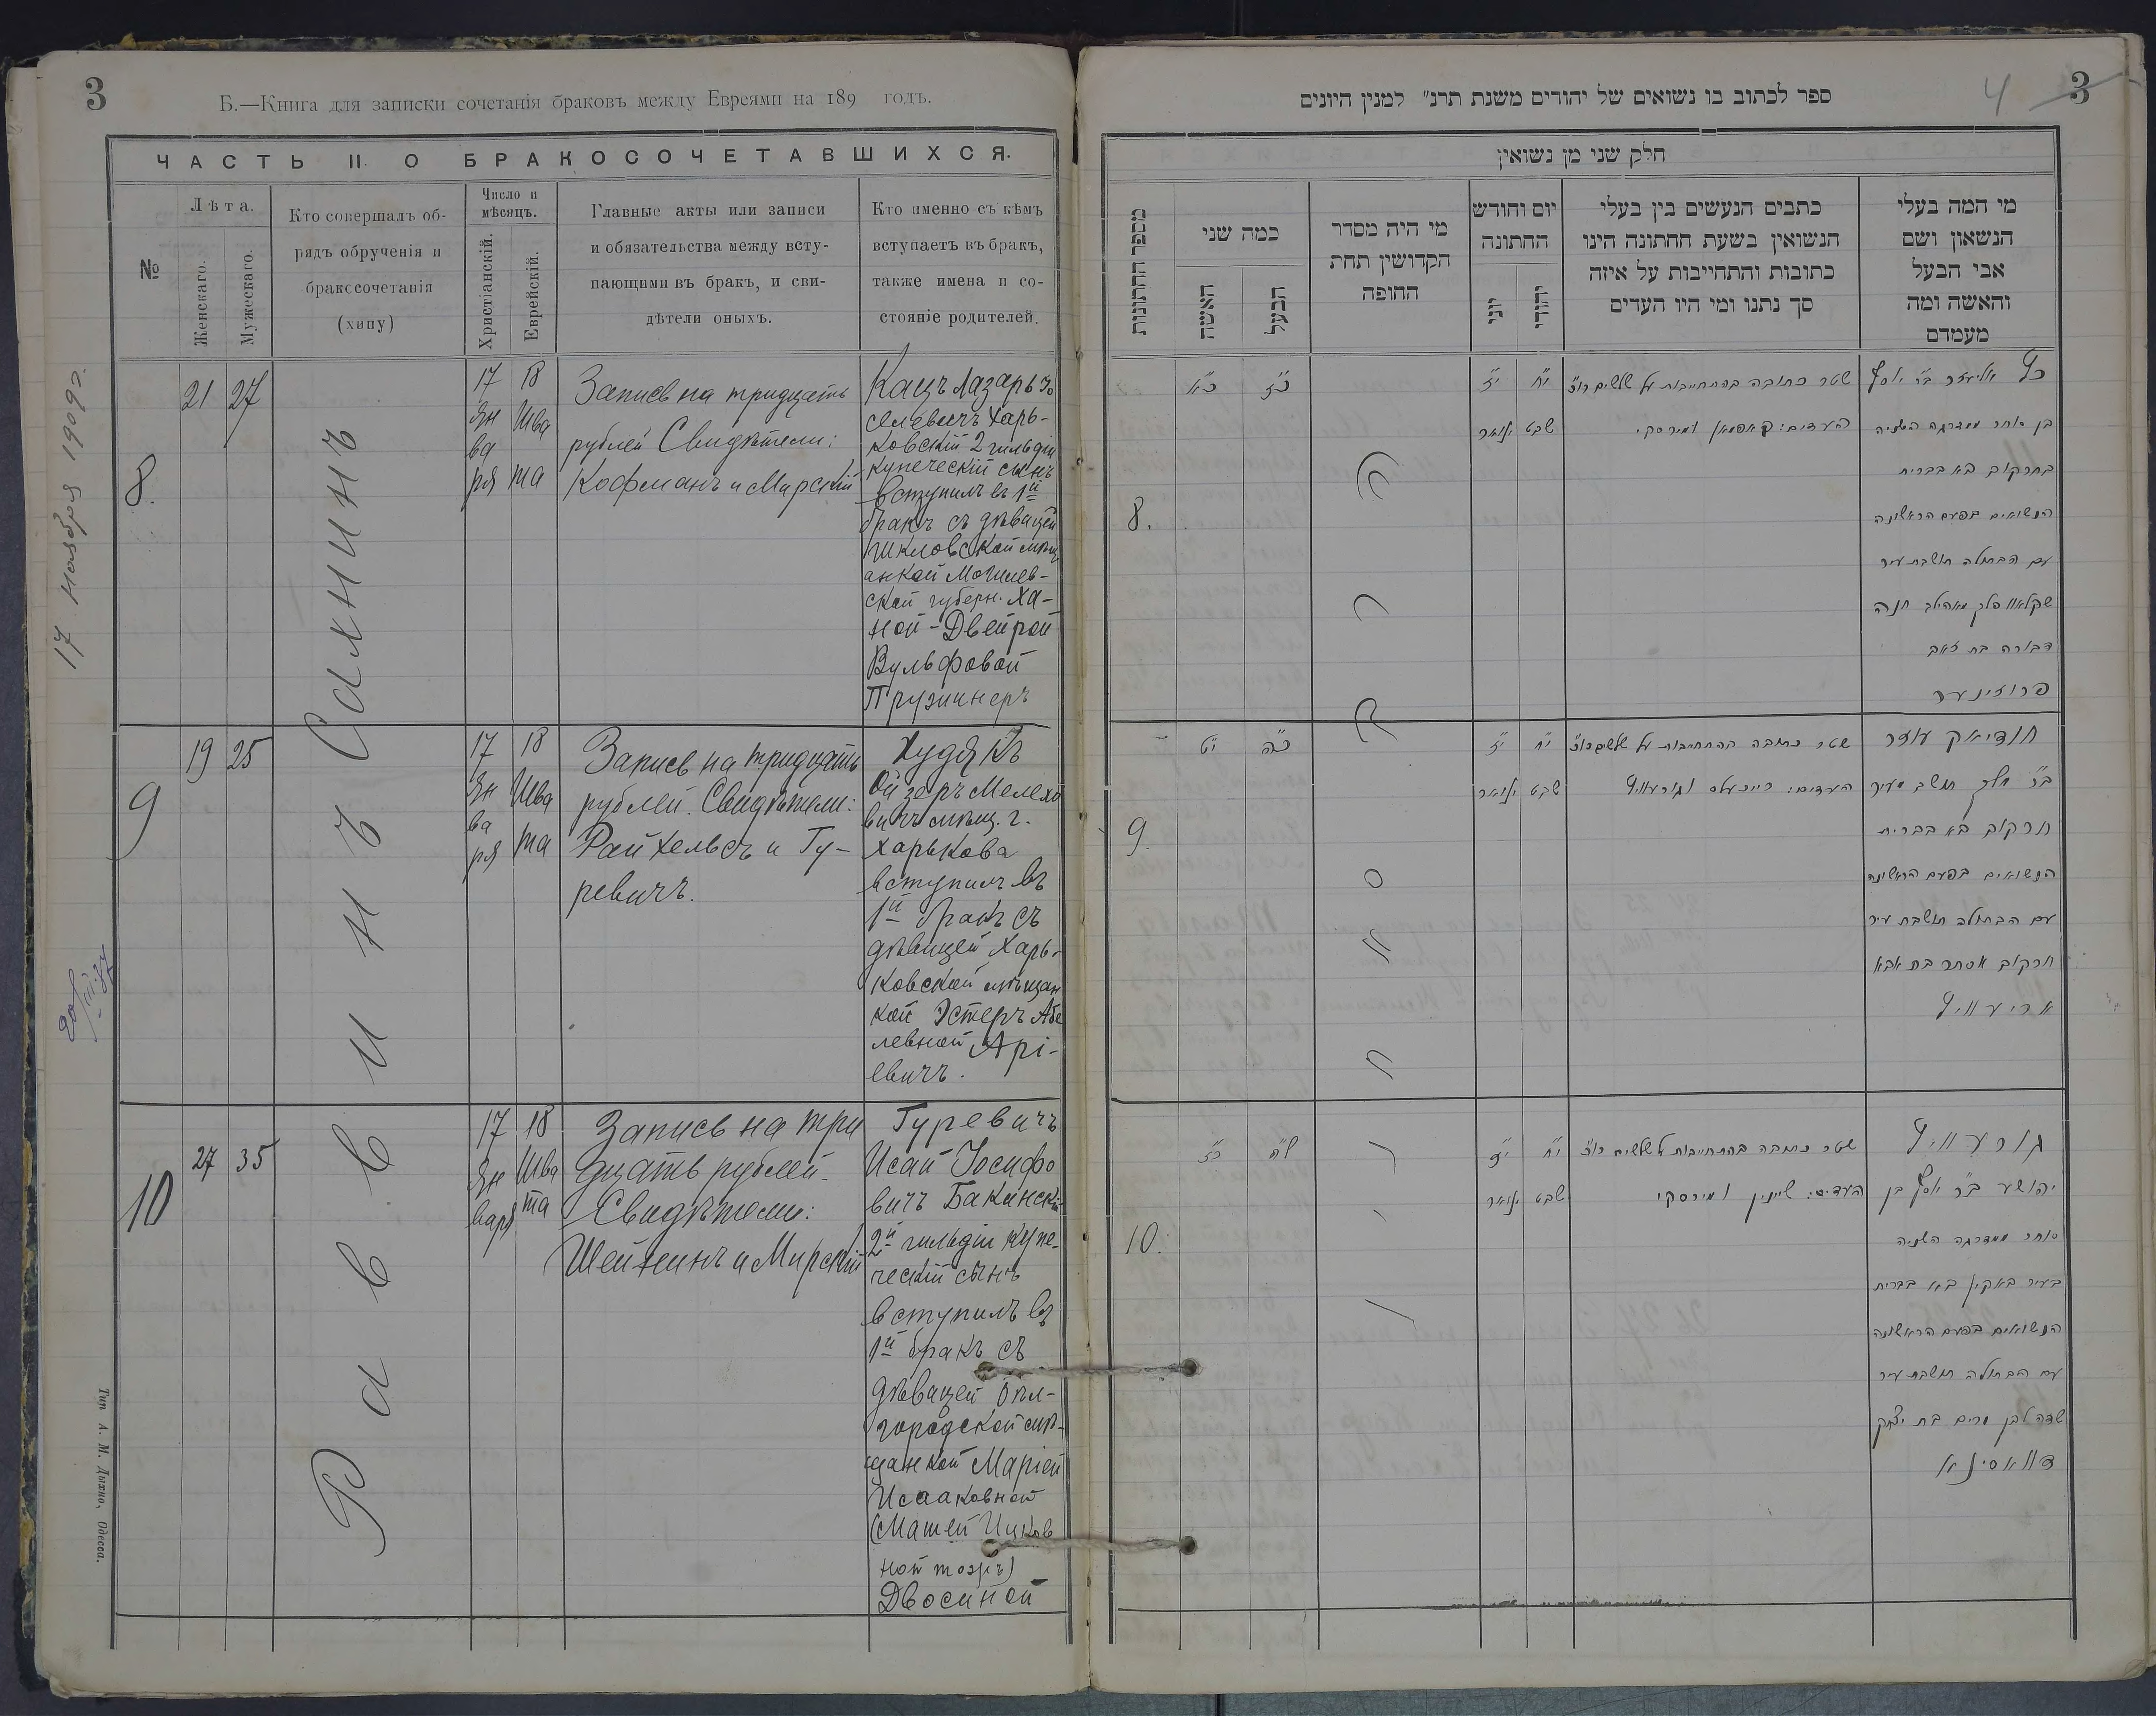 3
Б.—Книга для записки сочетанія браковъ между Евреями на 189 годъ.
ЧАСТЬ II. О БРАКОСОЧЕТАВШИХСЯ.
№
Лѣта.
Женскаго.
Мужескаго.
Кто совершалъ об-
рядъ обрученія и
бракосочетанія
(хипу)
Число и
мѣсяцъ.
Христіанскій.
Еврейскій.
Главные акты или записи
и обязательства между всту-
пающими въ бракъ, и сви-
дѣтели оныхъ.
Кто именно съ кѣмъ
вступаетъ въ бракъ,
также имена и со-
стояніе родителей.
17 Ноября 1909 г.
Раввинъ Сахнинъ
8.
21 27
17 18
Ян Шва
ва
ря та
Запись на тридцать
рублей Свидѣтели:
Кофманъ и Мирскій
Кацъ Лазарь Іо
селевичъ Харь-
ковскій 2 гильдіи
купеческій сынъ
вступилъ въ 1й
бракъ съ дѣвицей
Шкловской мѣщ
анкой Могилев-
ской губерн. Ха-
ной-Двейрой
Вульфовой
Пружинеръ
9
19 25
17 18
Ян Шва
ва
ря та
Запись на тридцать
рублей. Свидѣтели:
Райхельсъ и Гу-
ревичъ.
Худякъ
Ойзеръ Мелехо
вичъ мѣщ. г.
Харькова
вступилъ въ
1й бракъ съ
дѣвицей Харь-
ковской мѣщан
кой Эстеръ Абе
левной Арі-
евичъ.
10
27 35
17 18
Ян Шва
варя та
Запись на три
дцать рублей.
Свидѣтели:
Шейнинъ и Мирскій
Гуревичъ
Исай Іосифо
вичъ Бакинскій
2й гильдіи купе-
ческій сынъ
вступилъ въ
1й бракъ съ
дѣвицей Бѣл-
городской мѣ-
щанкой Маріей
Исааковной
(Машей Ицков
ной тожъ)
Двосиной
Тип. А. М. Дыхно, Одесса.
ספר לכתוב בו נשואים של יהודים משנת תרנ״ למנין היונים
4 3
חלק שני מן נשואין
מספר החתונות
כמה שני
האשה
הבעל
מי היה מסדר
הקדושין תחת
החופה
יום וחודש
החתונה
יוני
יהודי
כתבים הנעשים בין בעלי
הנשואין בשעת החתונה הינו
כתובות והתחייבות על איזה
סך נתנו ומי היו העדים
מי המה בעלי
הנשאון ושם
אבי הבעל
והאשה ומה
מעמדם
הרב סאחנין
8.
כ״א כ״ז
י״ז י״ח
ינואר שבט
שטר כתובה בהתחייבות על שלשים רו״כ
העדים: קאפמאן ומירסקי.
כ״ץ אליעזר ב״ר יוסף
בן סוחר ממדרגה השניה
בחרקוב בא בברית
הנשואים בפעם הראשונה
עם הבתולה תושבת עיר
שקלאוו פלך מאהילב חנה
דבורה בת זאב
פרוזינער
9.
י״ט כ״ה
י״ז י״ח
ינואר שבט
שטר כתובה בהתחייבות על שלשים רו״כ
העדים: רייכעלס וגורעוויץ
חודיאק עוזר
ב״ר מלך תושב מעיר
חרקוב בא בברית
הנשואים בפעם הראשונה
עם הבתולה תושבת עיר
חרקוב אסתר בת אבא
אריעוויץ
10.
כ״ז ל״ה
י״ז י״ח
ינואר שבט
שטר כתובה בהתחייבות על שלשים רו״כ
העדים: שיינין ומירסקי
גורעוויץ
יהושע ב״ר יוסף בן
סוחר ממדרגה השניה
בעיר באקין בא בברית
הנשואים בפעם הראשונה
עם הבתולה תושבת עיר
שדה לבן מרים בת יצחק
דוואסינא